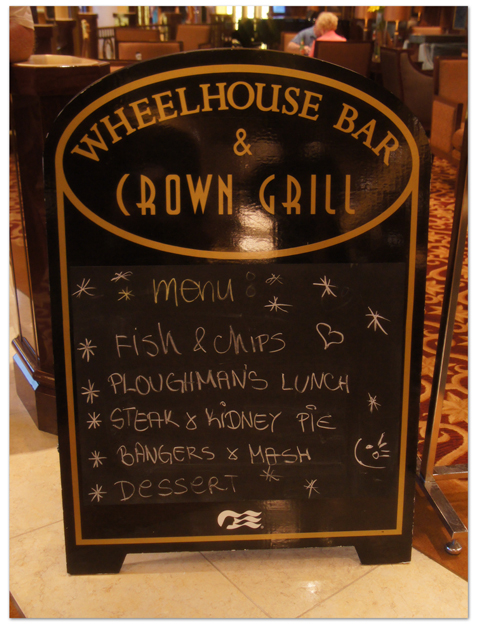 WHEELHOUSE BAR
&
CROWN GRILL
menu:
* Fish & chips
* PLOUGHMAN'S LUNCH
* STEAK & KIDNEY PIE
* BANGERS & MASH
* DesserT